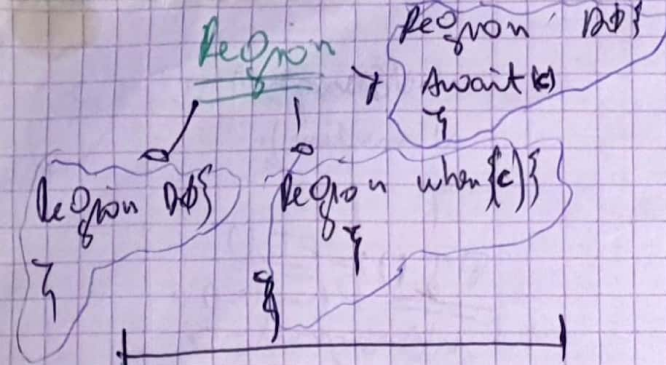 Region
Region DO{
Await(c)
}
Region DO{
}
Region when(c){
}